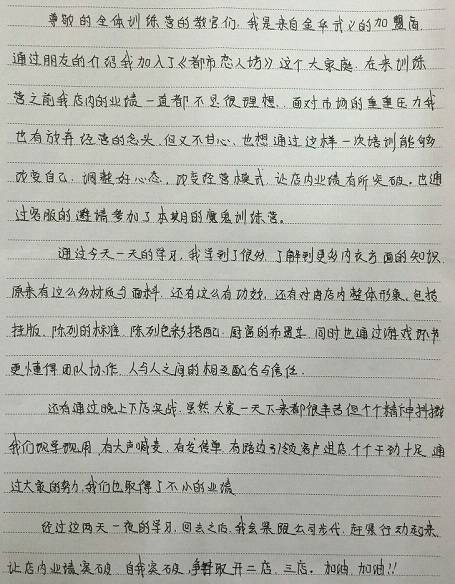 尊敬的全体训练营的教官们，我是来自金华武义的加盟商，
通过朋友的介绍我加入了《都市恋人坊》这个大家庭，在来训练
营之前我店内的业绩一直都不是很理想，面对市场的重重压力我
也有放弃经营的念头，但又不甘心，也想通过这样一次培训能够
改变自己，调整好心态，改变经营模式，让店内业绩有所突破。也通
过客服的邀请参加了本期的魔鬼训练营。
通过今天一天的学习，我学到了很多，了解到更多内衣方面的知识，
原来有这么多材质与面料，还有这么有功效，还有对店内整体形象，包括
挂版，陈列的标准，陈列色彩搭配，橱窗的布置等，同时也通过游戏环节
更懂得团队协作，人与人之间的相互配合与信任。
还有通过晚上下店实战，虽然大家一天下来都很辛苦但个个精神抖擞
我们现学现用，有大声喊麦，有发传单，有路边引领客户进店，个个干劲十足，通
过大家的努力，我们也取得了不小的业绩
经过这两天一夜的学习，回去之后，我会紧跟公司步伐，赶紧行动起来，
让店内业绩突破，自我突破，争取开二店，三店。加油，加油!!